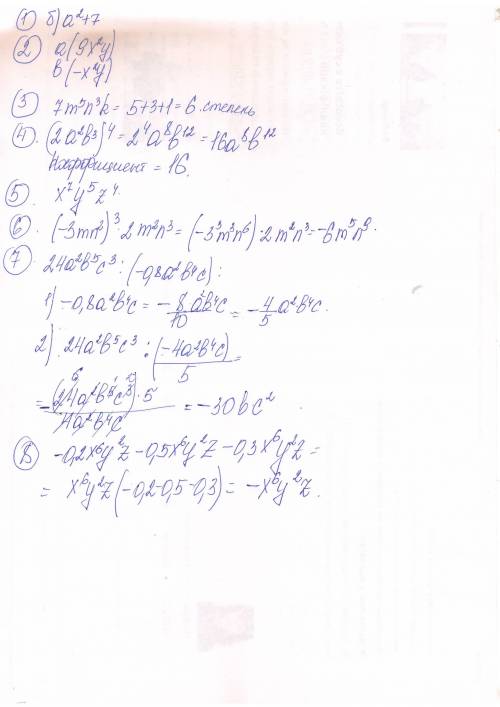 ① б) a²+7
② a(9x²y)
в(-x²y)
③ 7m⁵n³k = 5+3+1 = 6 степень
④ (2a²b³)⁴ = 2⁴a⁸b¹² = 16a⁸b¹²
Коэффициент = 16.
⑤ x⁷y⁵z⁴.
⑥ (-3mn²)³·2m²n³ = (-3³m³n⁶)·2m²n³ = -6m⁵n⁹.
⑦ 24a²b⁵c³ : (-0,8a²b⁴c) :
1) -0,8a²b⁴c = -8a²b⁴c/10 = -4/5 a²b⁴c.
2) 24a²b⁵c³ : (-4a²b⁴c)/5 =
= -(24a²b⁵c³)·5/4a²b⁴c = -30bc²
⑧ -0,2x⁶y²z -0,5x⁶y²z -0,3x⁶y²z =
= x⁶y²z(-0,2-0,5-0,3) = -x⁶y²z.